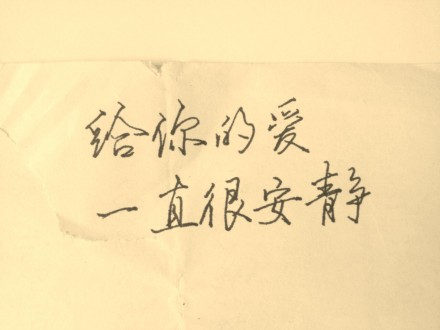 给你的爱
一直很安静